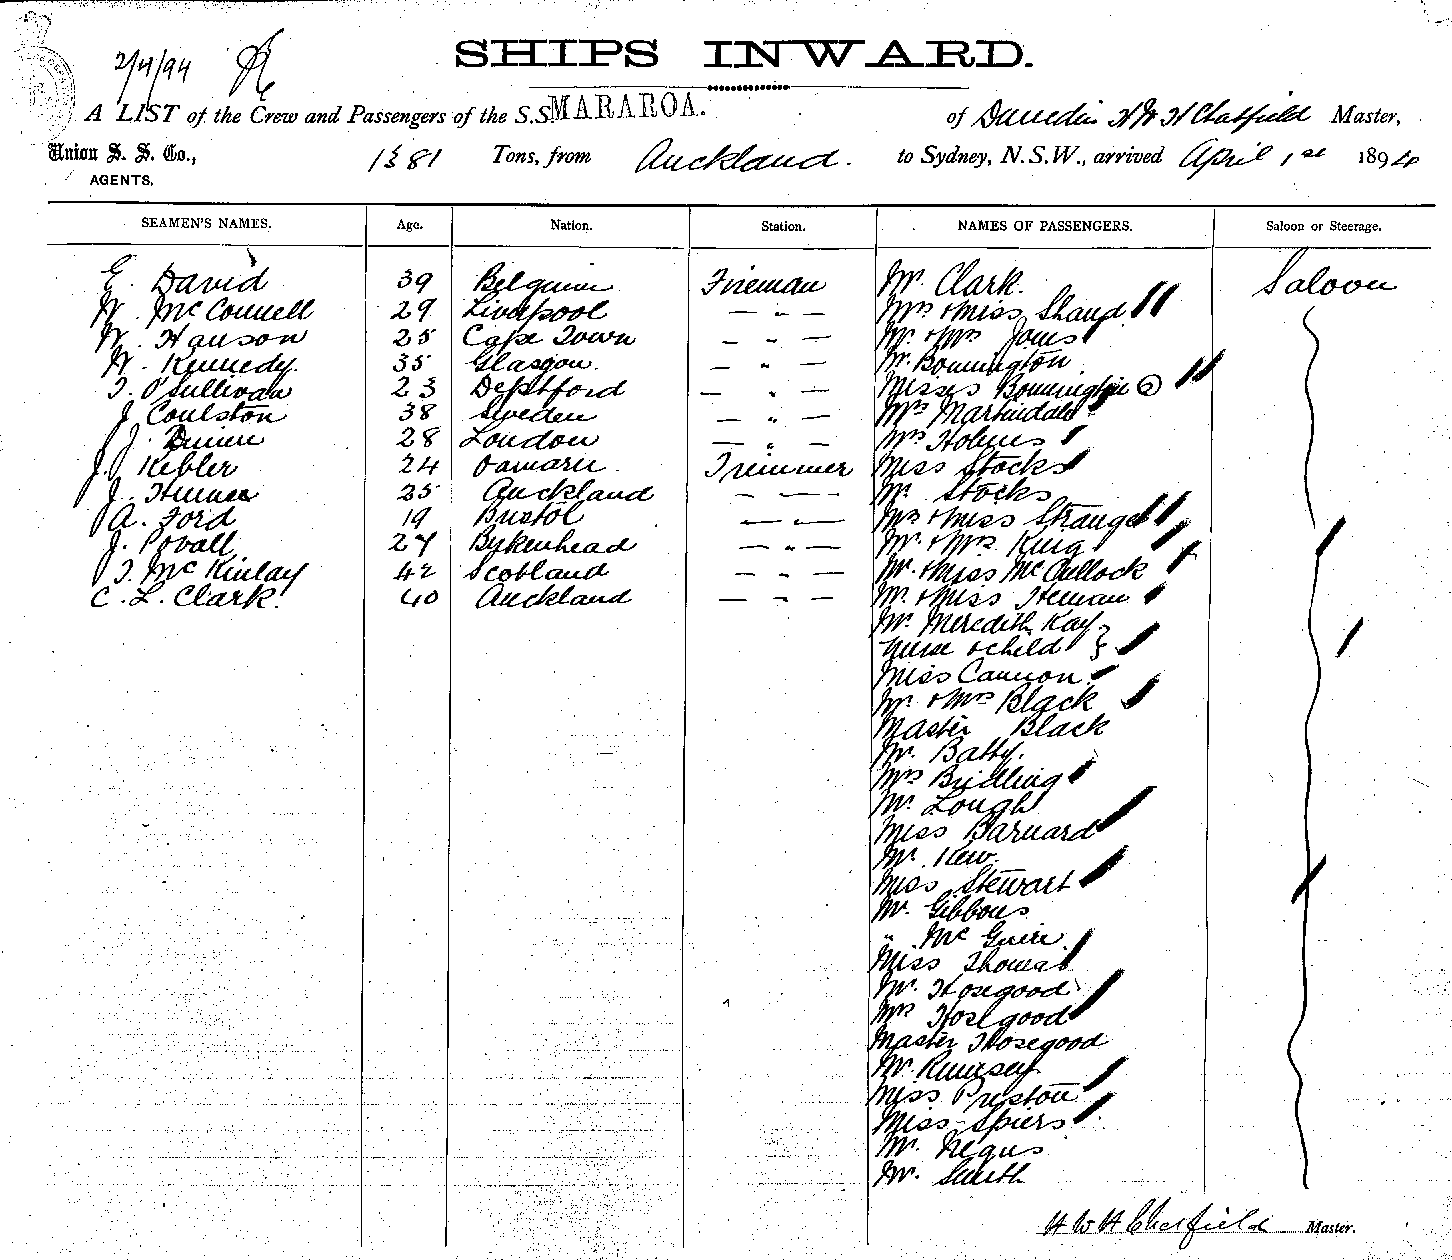 2/4/94
SHIPS INWARD.
A LIST of the Crew and Passengers of the S.S. MARAROA. of Dunedin H W H Chatfield Master,
Union S. S. Co., 1381 Tons, from Auckland. to Sydney, N.S.W., arrived April 1st 1894
AGENTS.
SEAMEN'S NAMES. Age. Nation. Station. NAMES OF PASSENGERS. Saloon or Steerage.
E. David 39 Belgium Fireman Mr. Clark. Saloon
W. McConnell 29 Liverpool — " — Mrs & Miss Shand
W. Hanson 25 Cape Town — " — Mr. & Mrs Jones
W. Kennedy. 35 Glasgow. — " — Mr. Bonnington
T. O'Sullivan 23 Deptford — " — Misses Bonnington 2
J. Coulston 38 Sweden — " — Mrs Martindale
J. 28 London — " — Mrs Holmes
J. Kebler 24 Oamaru. Trimmer Miss Stocks
J. 25 Auckland — " — Mr. Stocks
A. Ford 19 Bristol — " — & Miss Strange
J. Povall 27 Bykenhead — " — Mr. & Mrs. King
T. McKinlay 42 Scotland — " — Mr. & Miss McCullock
C. L. Clark. 40 Auckland — " — Mr. & Miss
Mr. Meredith Kay }
Nurse & child }
Miss Cannon
Mr. & Mrs Black
Master Black
Mr. Batty.
Mrs Bridling
Mr. Lough
Miss Barnard
Mr. Kew.
Miss Stewart
Mr. Gibbons
" McGuire
Miss Thomas
Mr. Hosegood
Mrs Hosegood
Master Hosegood
Mr. Rumsey
Miss Preston
Miss Spiers
Mr. Negus
Mr. Smith
H W H Chatfield Master.